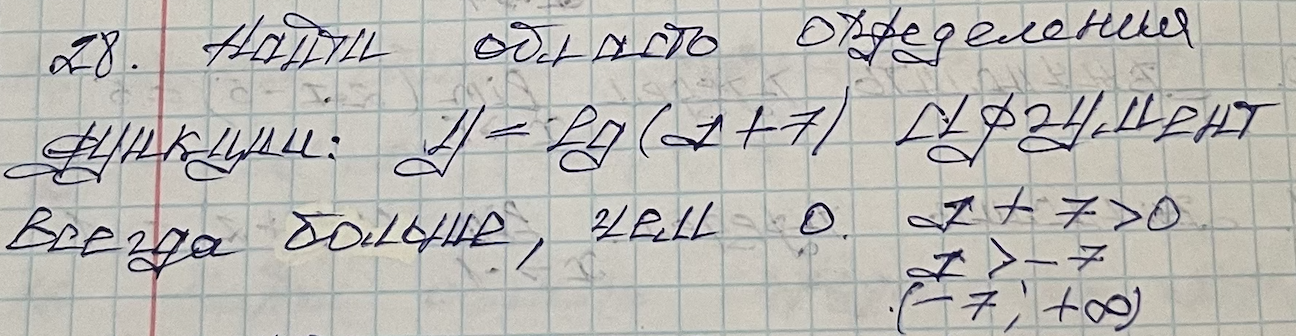 28. Найти область определения
функции: y = lg(x+7) Аргумент
всегда больше, чем 0. x + 7 > 0
x > -7
(-7; +∞)